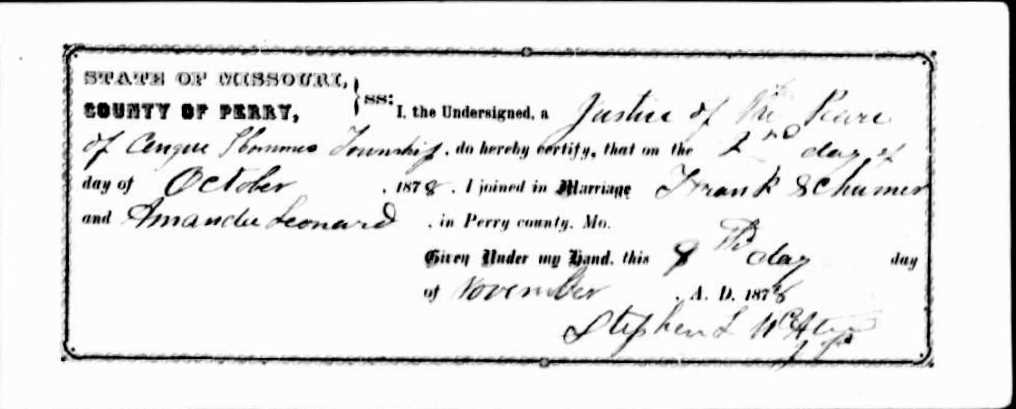 STATE OF MISSOURI,
COUNTY OF PERRY, } ss: I, the Undersigned, a Justice of the Peace
of Cinque Hommes Township, do hereby certify, that on the 2nd day of
day of October, 1878, I joined in Marriage Frank Schumer
and Amanda Leonard, in Perry county, Mo.
Given Under my Hand, this 8th day day
of November, A. D. 1878
Stephen L